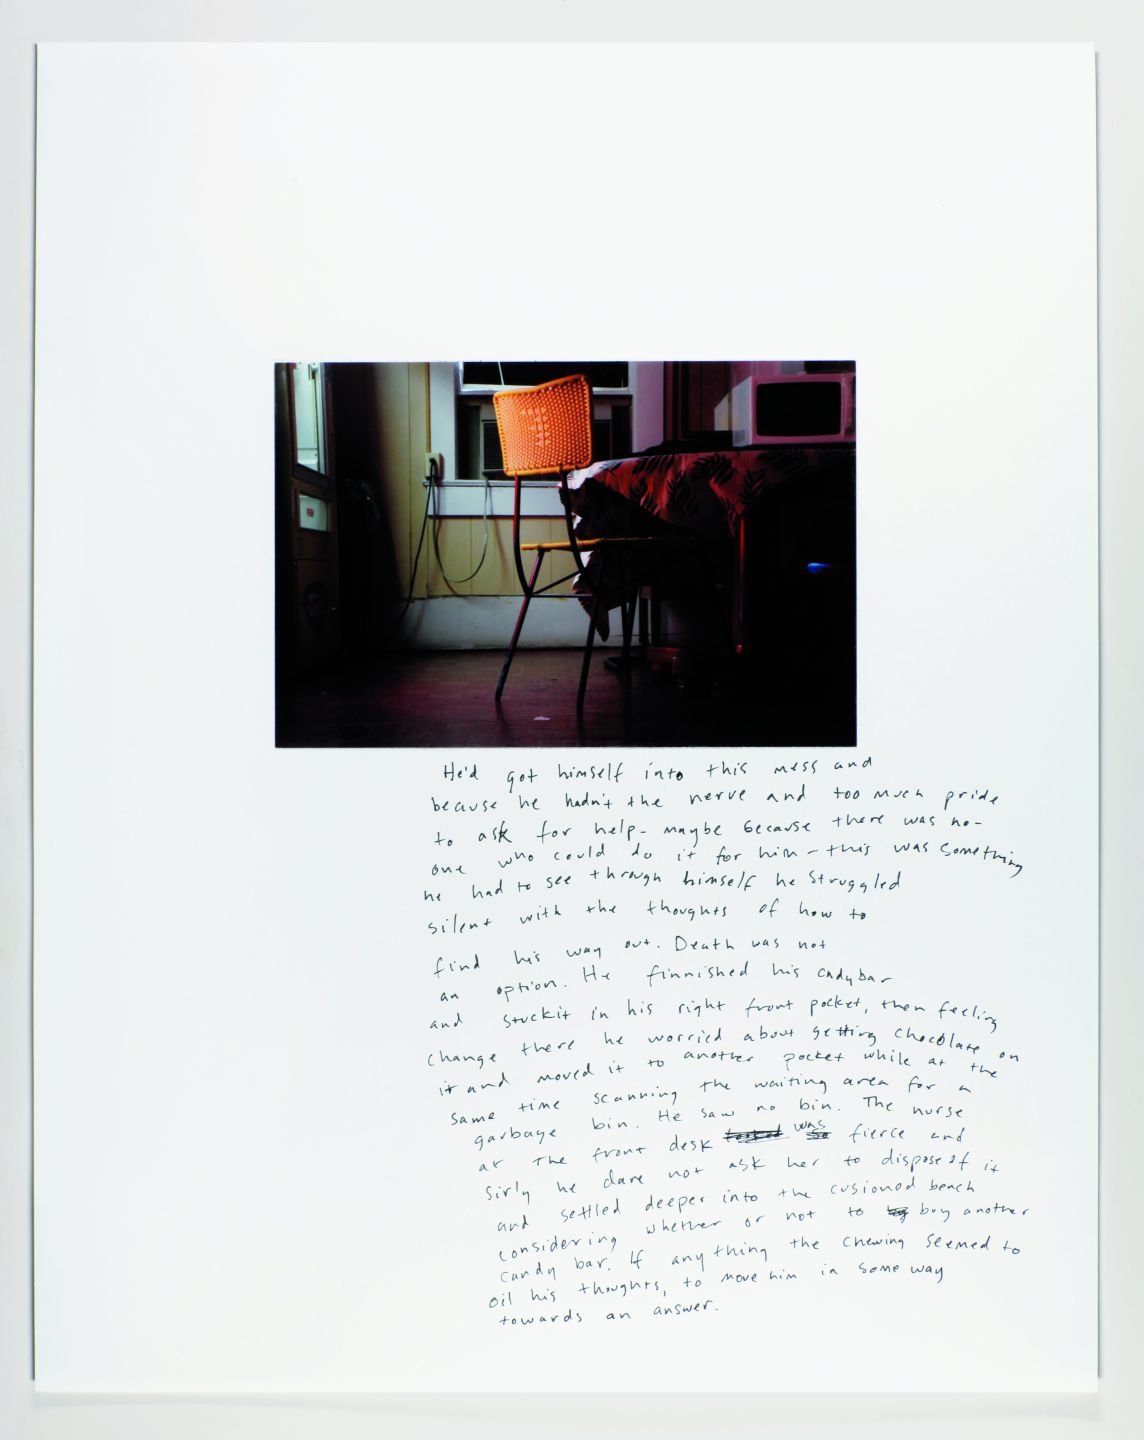 He'd got himself into this mess and
because he hadn't the nerve and too much pride
to ask for help- maybe because there was no-
one who could do it for him - this was something
he had to see through himself he struggled
silent with the thoughts of how to
find his way out. Death was not
an option. He finnished his cadybar
and stuckit in his right front pocket, then feeling
change there he worried about getting chocolate on
it and moved it to another pocket while at the
same time scanning the waiting area for a
garbage bin. He saw no bin. The nurse
at the front desk was fierce and
sirly he dare not ask her to dispose of it
and settled deeper into the cusioned bench
considering whether or not to buy another
candy bar. If anything the chewing seemed to
oil his thoughts, to move him in some way
towards an answer.